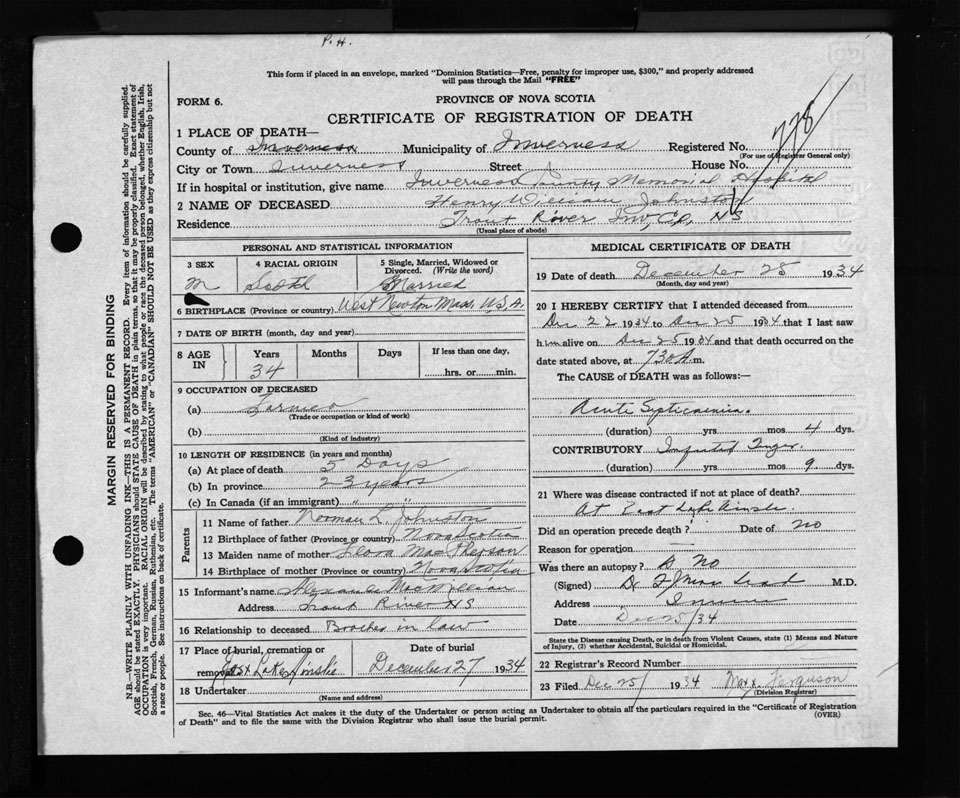 P. H.
This form if placed in an envelope, marked "Dominion Statistics—Free, penalty for improper use, $300," and properly addressed
will pass through the Mail "FREE"
FORM 6.
PROVINCE OF NOVA SCOTIA
CERTIFICATE OF REGISTRATION OF DEATH
778
1 PLACE OF DEATH—
County of Inverness Municipality of Inverness Registered No.
(For use of Registrar General only)
City or Town Inverness Street House No.
If in hospital or institution, give name Inverness County Memorial Hospital
2 NAME OF DECEASED Henry William Johnston
Residence Trout River Inv. Co. NS
(Usual place of abode)
PERSONAL AND STATISTICAL INFORMATION
3 SEX 4 RACIAL ORIGIN 5 Single, Married, Widowed or
Divorced. (Write the word)
M Scotch Married
6 BIRTHPLACE (Province or country) West Newton Mass. U.S.A.
7 DATE OF BIRTH (month, day and year)
8 AGE IN Years Months Days If less than one day,
34 hrs. or min.
9 OCCUPATION OF DECEASED
(a) Farmer
(Trade or occupation or kind of work)
(b)
(Kind of industry)
10 LENGTH OF RESIDENCE (in years and months)
(a) At place of death 5 Days
(b) In province 23 years
(c) In Canada (if an immigrant) " "
Parents
11 Name of father Norman L. Johnston
12 Birthplace of father (Province or country) Nova Scotia
13 Maiden name of mother Flora MacPherson
14 Birthplace of mother (Province or country) Nova Scotia
15 Informant's name Alexander MacWilliam
Address Trout River NS
16 Relationship to deceased Brother in law
17 Place of burial, cremation or Date of burial
removal East Lake Ainslie December 27 1934
18 Undertaker
(Name and address)
MEDICAL CERTIFICATE OF DEATH
19 Date of death December 25 1934
(Month, day and year)
20 I HEREBY CERTIFY that I attended deceased from
Dec 22 1934 to Dec 25 1934 that I last saw
him alive on Dec 25 1934 and that death occurred on the
date stated above, at 7 30 A m.
The CAUSE of DEATH was as follows:—
Acute Septicaemia.
(duration) yrs. mos 4 dys.
CONTRIBUTORY Infected Finger.
(duration) yrs. mos 9 dys.
21 Where was disease contracted if not at place of death?
At East Lake Ainslie.
Did an operation precede death? Date of No
Reason for operation
Was there an autopsy? No
(Signed) Dr M.D.
Address
Date Dec 25/34
State the Disease causing Death, or in death from Violent Causes, state (1) Means and Nature
of Injury, (2) whether Accidental, Suicidal or Homicidal.
22 Registrar's Record Number
23 Filed Dec 25/ 1934 Ferguson
(Division Registrar)
Sec. 46—Vital Statistics Act makes it the duty of the Undertaker or person acting as Undertaker to obtain all the particulars required in the "Certificate of Registration
of Death" and to file the same with the Division Registrar who shall issue the burial permit.
(OVER)
MARGIN RESERVED FOR BINDING
N.B.—WRITE PLAINLY WITH UNFADING INK—THIS IS A PERMANENT RECORD. Every item of information should be carefully supplied.
AGE should be stated EXACTLY. PHYSICIANS should STATE CAUSE OF DEATH in plain terms, so that it may be properly classified. Exact statement of
OCCUPATION is very important. RACIAL ORIGIN will be described by stating to what people or race the deceased person belonged, whether English, Irish,
Scottish, French, German, Russian, Ruthenian, etc. The terms "AMERICAN" or "CANADIAN" SHOULD NOT BE USED as they express citizenship but not
a race or people. See instructions on back of certificate.